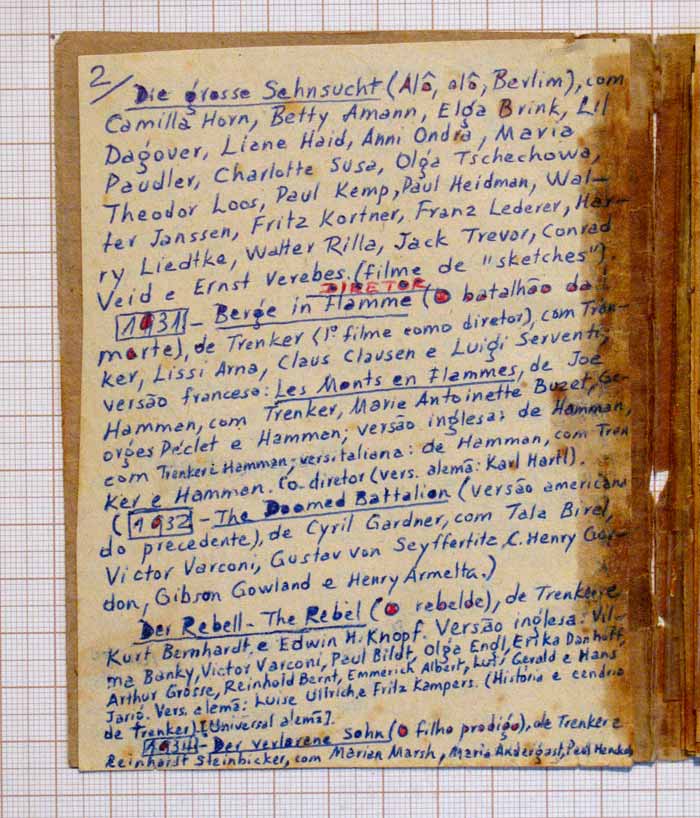 2/
Die grosse Sehnsucht (Alô, alô, Berlim), com
Camilla Horn, Betty Amann, Elga Brink, Lil
Dagover, Liane Haid, Anni Ondra, Maria
Paudler, Charlotte Susa, Olga Tschechowa,
Theodor Loos, Paul Kemp, Paul Heidman, Wal-
ter Janssen, Fritz Kortner, Franz Lederer, Har-
ry Liedtke, Walter Rilla, Jack Trevor, Conrad
Veid e Ernst Verebes. (filme de "sketches").
DIRETOR
1931 - Berge in Flamme (O batalhão da
morte), de Trenker (1º filme como diretor), com Tren-
ker, Lissi Arna, Claus Clausen e Luigi Serventi;
versão francesa: Les Monts en Flammes, de Joe
Hamman, com Trenker, Marie Antoinette Buzet, Ge-
orges Péclet e Hamman; versão inglesa: de Hamman,
com Trenker e Hamman; vers. italiana: de Hamman, com Tren
ker e Hamman. Co-diretor (vers. alemã: Karl Hartl).
(1932 - The Doomed Battalion (versão americana
do precedente), de Cyril Gardner, com Tala Birel,
Victor Varconi, Gustav von Seyffertitz, C. Henry Gor-
don, Gibson Gowland e Henry Armetta.)
Der Rebell - The Rebel (O rebelde), de Trenker e
Kurt Bernhardt, e Edwin H. Knopf. Versão inglesa: Vil-
ma Banky, Victor Varconi, Paul Bildt, Olga Engl, Erika Danhoff,
Arthur Grosse, Reinhold Bernt, Emmerick Albert, Luis Gerald e Hans
Jario. Vers. alemã: Luise Ullrich, e Fritz Kampers. (História e cenário
de Trenker) [Universal alemã].
1934 - Der verlorene Sohn (O filho prodigo), de Trenker e
Reinhardt Steinbicker, com Marian Marsh, Maria Andergast, Paul Henckels